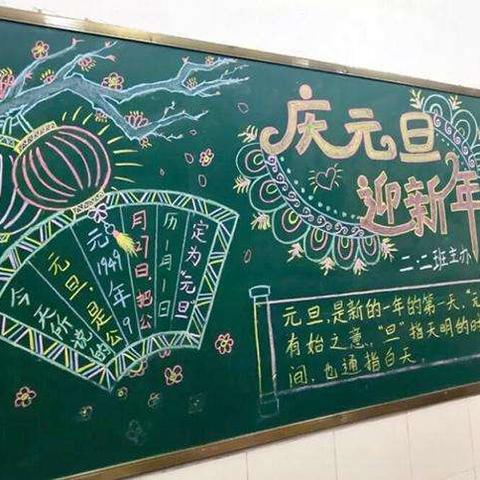 庆元旦
迎新年
二.二班主办
今天所说的
元旦,是公
元1949年9
月27日把公
历一月一日
定为“元旦
元旦,是新的一年的第一天,“元
有始之意,“旦”指天明的时
间,也通指白天.